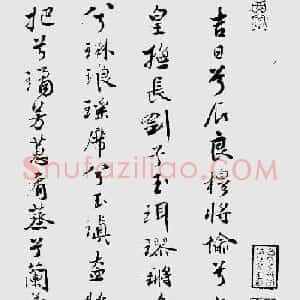 吉日兮辰良穆將愉兮
皇撫長劍兮玉珥璆鏘
兮琳琅瑤席兮玉瑱盍將
把兮瓊芳蕙肴蒸兮蘭
Shufaziliao.com